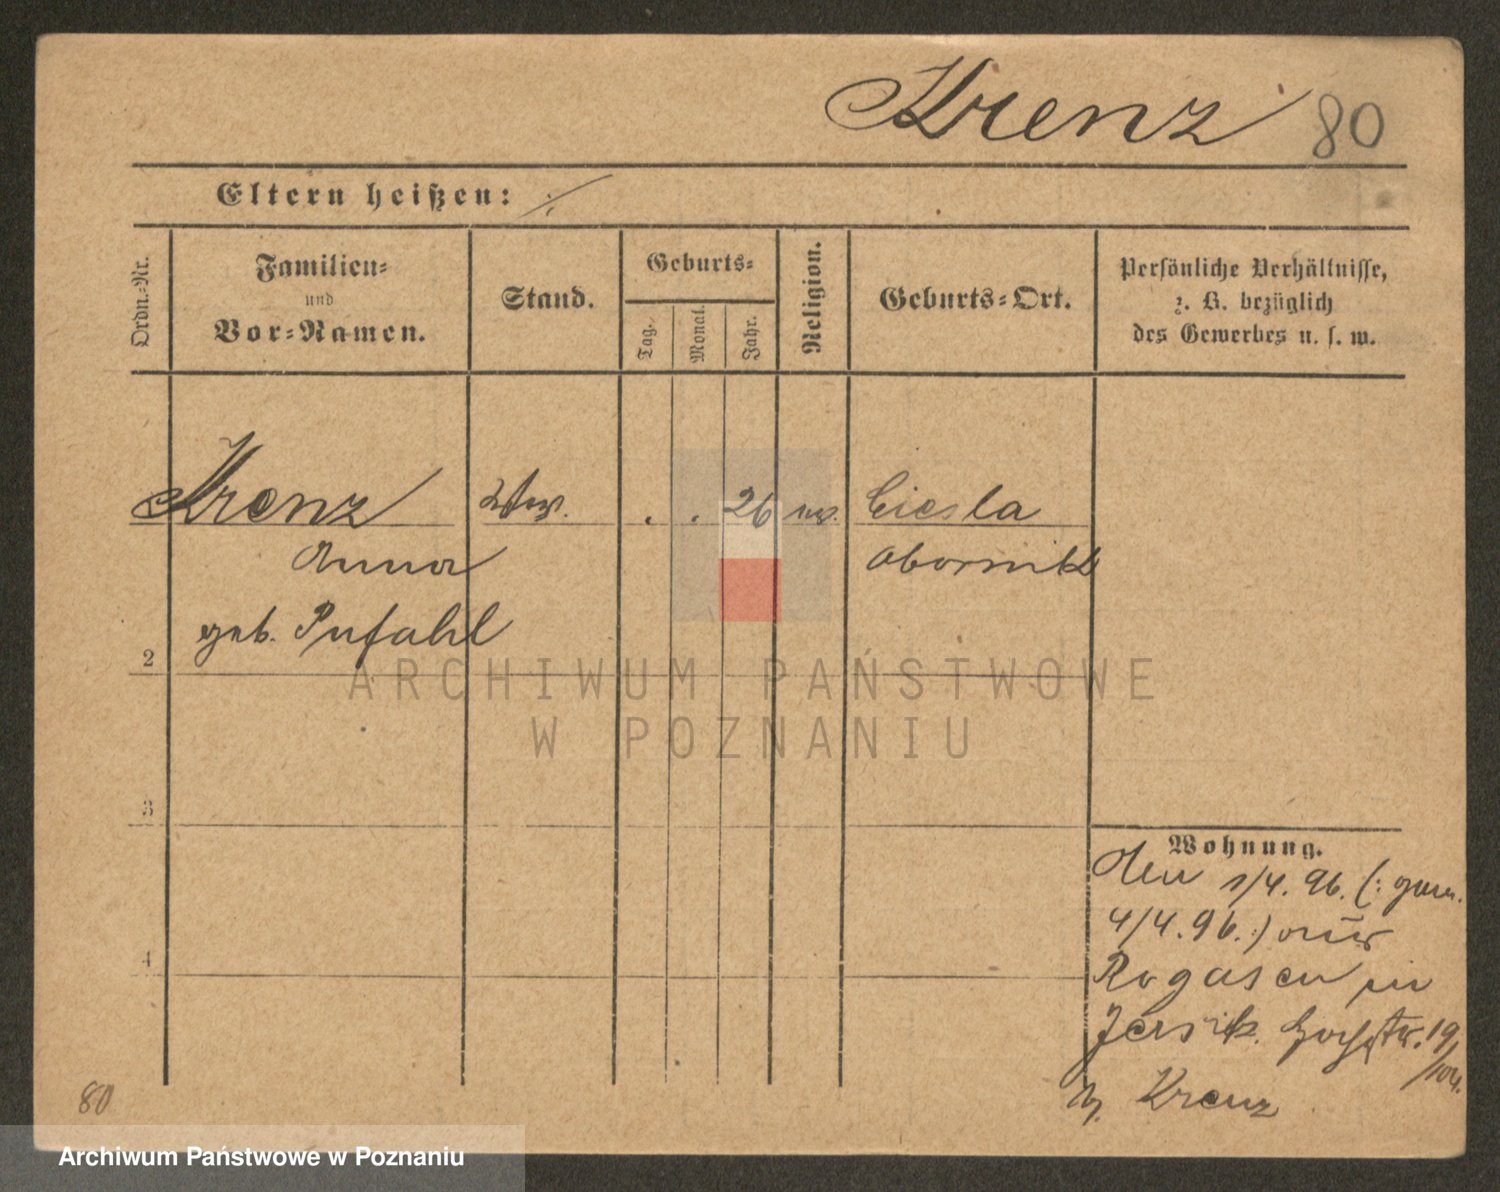 Krenz 80
Eltern heißen: ·/·
Ordn.-Nr.
Familien-
und
Vor-Namen.
Stand.
Geburts-
Tag.
Monat.
Jahr.
Religion.
Geburts-Ort.
Persönliche Verhältnisse,
z. B. bezüglich
des Gewerbes u. s. w.
Krenz Ww. . . 26 ev. Ciesla
Anna Obornik
geb. Pufahl
2
3
4
Wohnung.
Den 1/4. 96. (: gem.
4/4. 96. :) aus
Rogasen in
Jersitz. Hochstr. 19
b. Krenz
80
ARCHIWUM PAŃSTWOWE
W POZNANIU
Archiwum Państwowe w Poznaniu